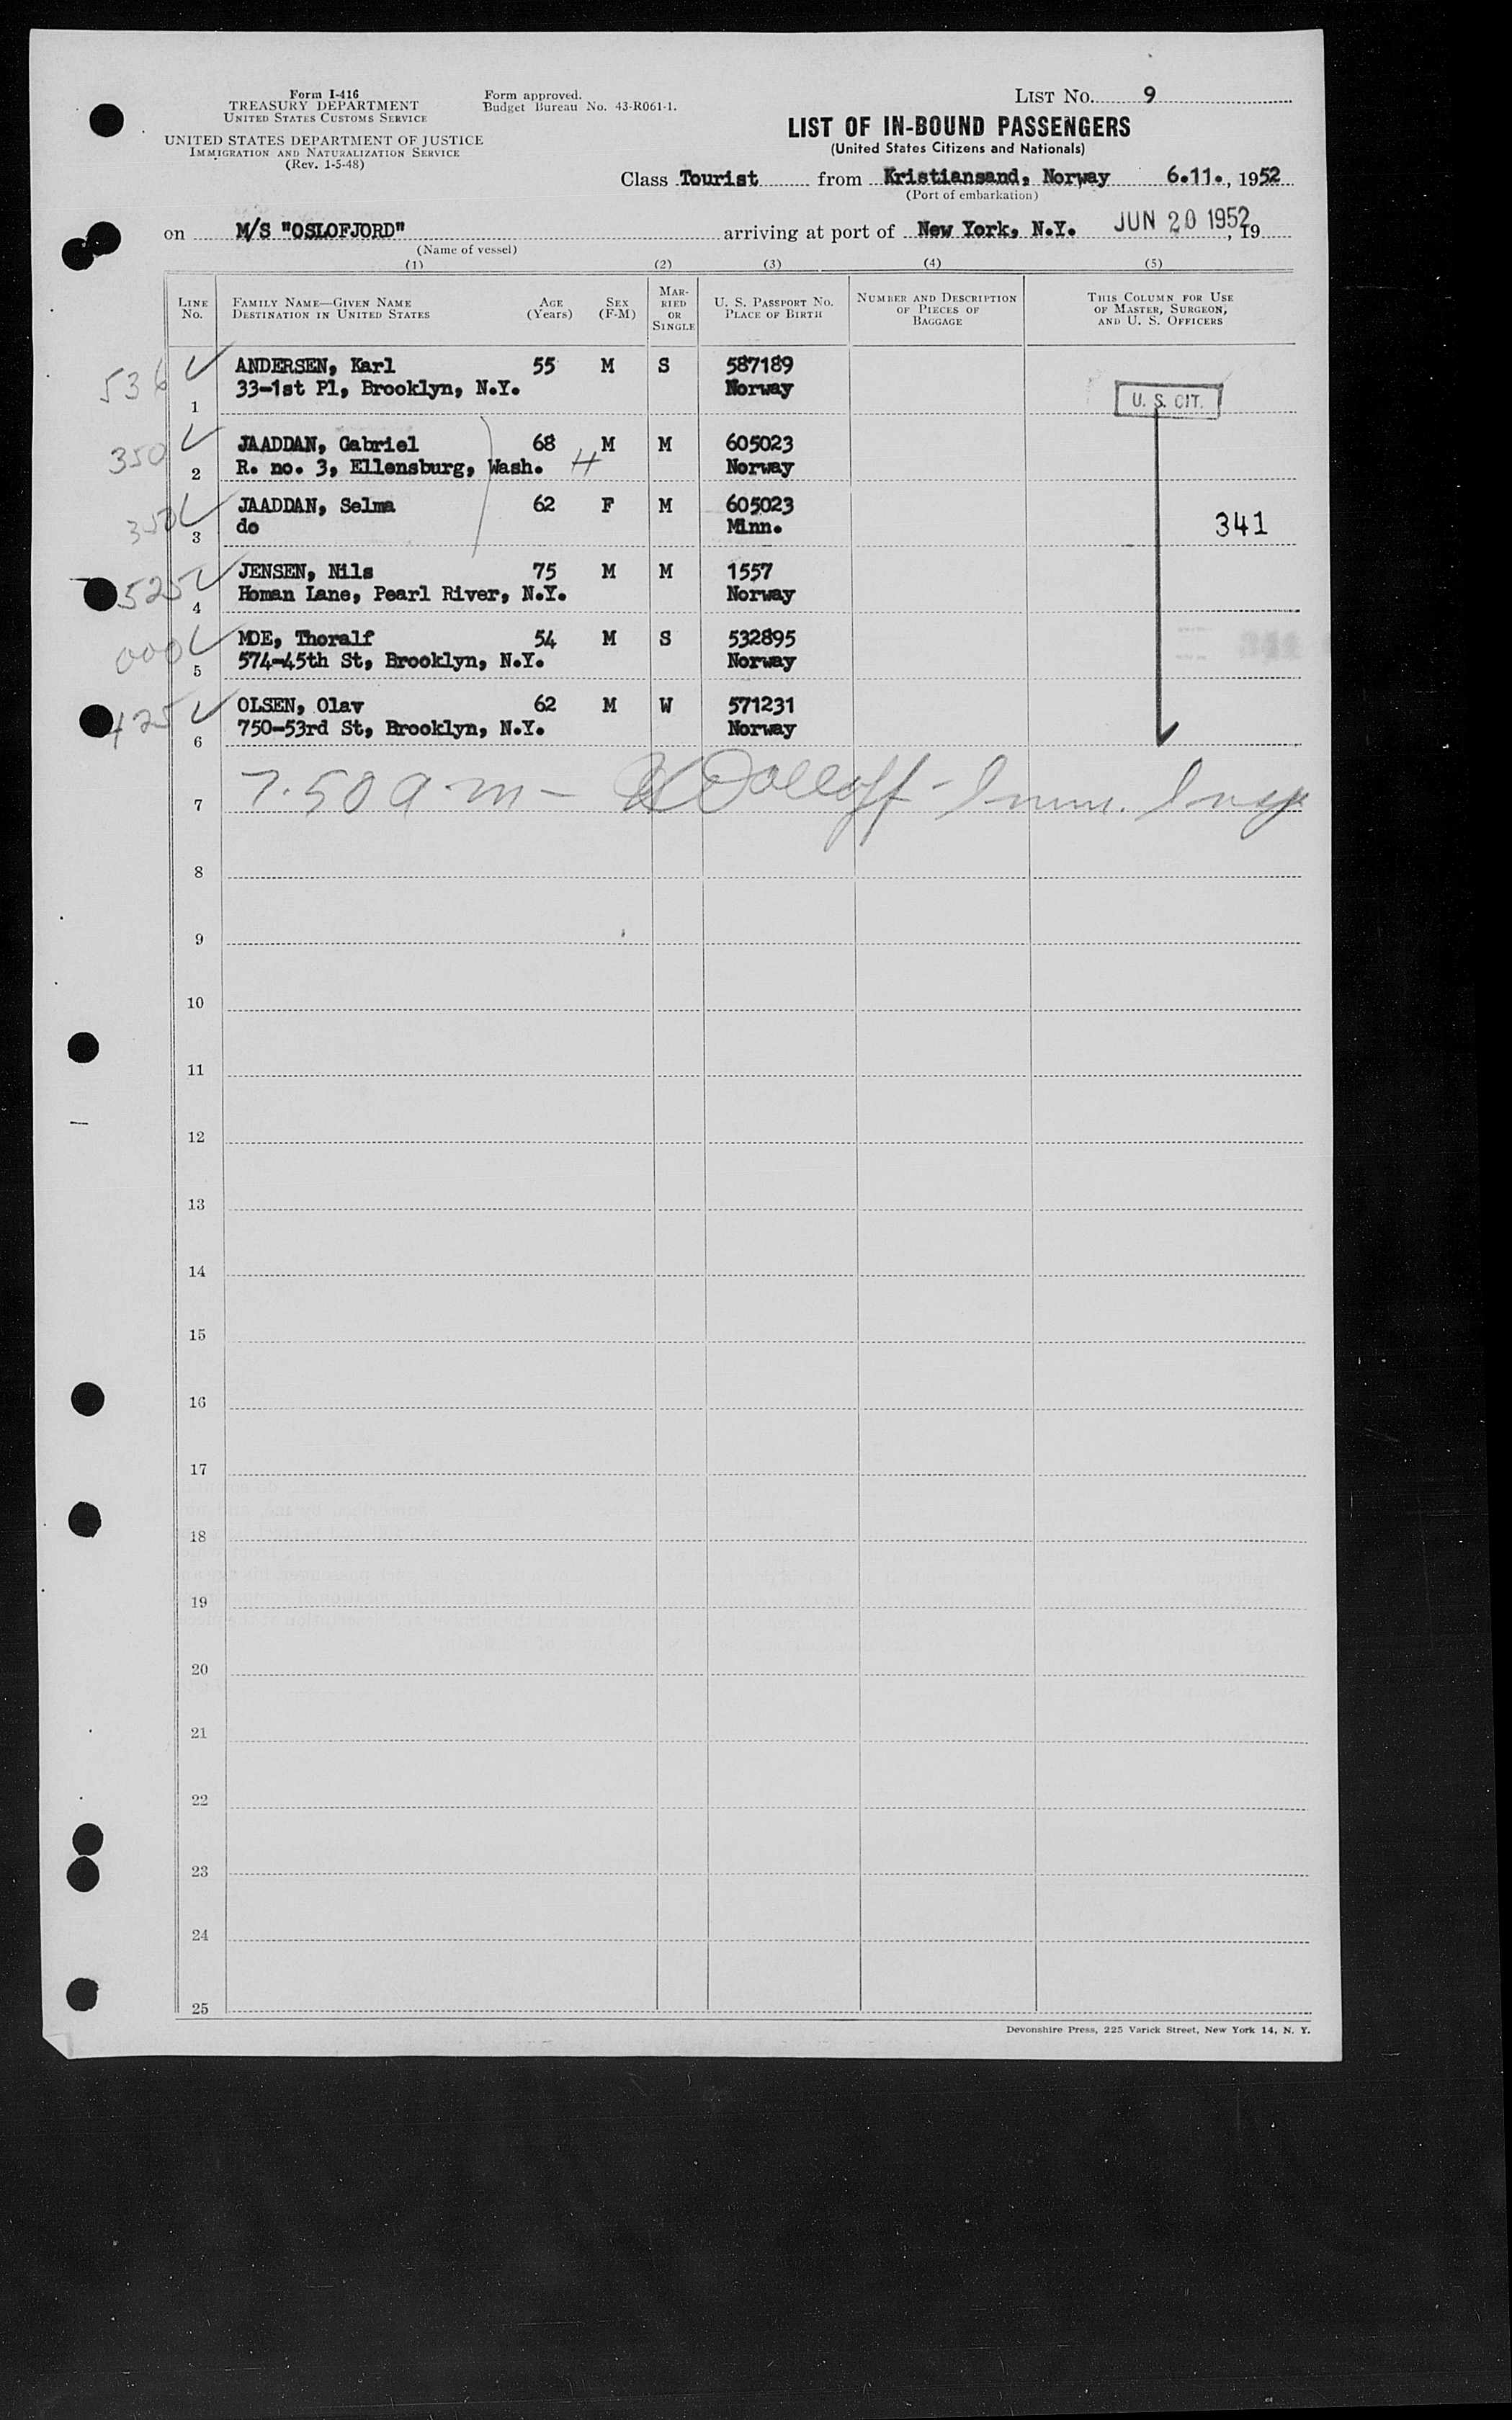 Form I-416
TREASURY DEPARTMENT
UNITED STATES CUSTOMS SERVICE
UNITED STATES DEPARTMENT OF JUSTICE
IMMIGRATION AND NATURALIZATION SERVICE
(Rev. 1-5-48)
Form approved.
Budget Bureau No. 43-R061-1.
LIST NO. 9
LIST OF IN-BOUND PASSENGERS
(United States Citizens and Nationals)
Class Tourist from Kristiansand, Norway 6.11., 1952
(Port of embarkation)
on M/S "OSLOFJORD" arriving at port of New York, N.Y. JUN 20 1952, 19
(Name of vessel)
(1) (2) (3) (4) (5)
LINE NO. FAMILY NAME—GIVEN NAME DESTINATION IN UNITED STATES AGE (Years) SEX (F-M) MARRIED OR SINGLE U. S. PASSPORT NO. PLACE OF BIRTH NUMBER AND DESCRIPTION OF PIECES OF BAGGAGE THIS COLUMN FOR USE OF MASTER, SURGEON, AND U. S. OFFICERS
536 ANDERSEN, Karl 55 M S 587189
1 33-1st Pl, Brooklyn, N.Y. Norway U. S. CIT.
350 JAADDAN, Gabriel 68 M M 605023
2 R. no. 3, Ellensburg, Wash. H Norway
350 JAADDAN, Selma 62 F M 605023
3 do Minn. 341
525 JENSEN, Nils 75 M M 1557
4 Homan Lane, Pearl River, N.Y. Norway
000 MOE, Thoralf 54 M S 532895
5 574-45th St, Brooklyn, N.Y. Norway
425 OLSEN, Olav 62 M W 571231
6 750-53rd St, Brooklyn, N.Y. Norway
7 7.50 am - Dolloff - Imm. Insp
8
9
10
11
12
13
14
15
16
17
18
19
20
21
22
23
24
25
Devonshire Press, 225 Varick Street, New York 14, N. Y.